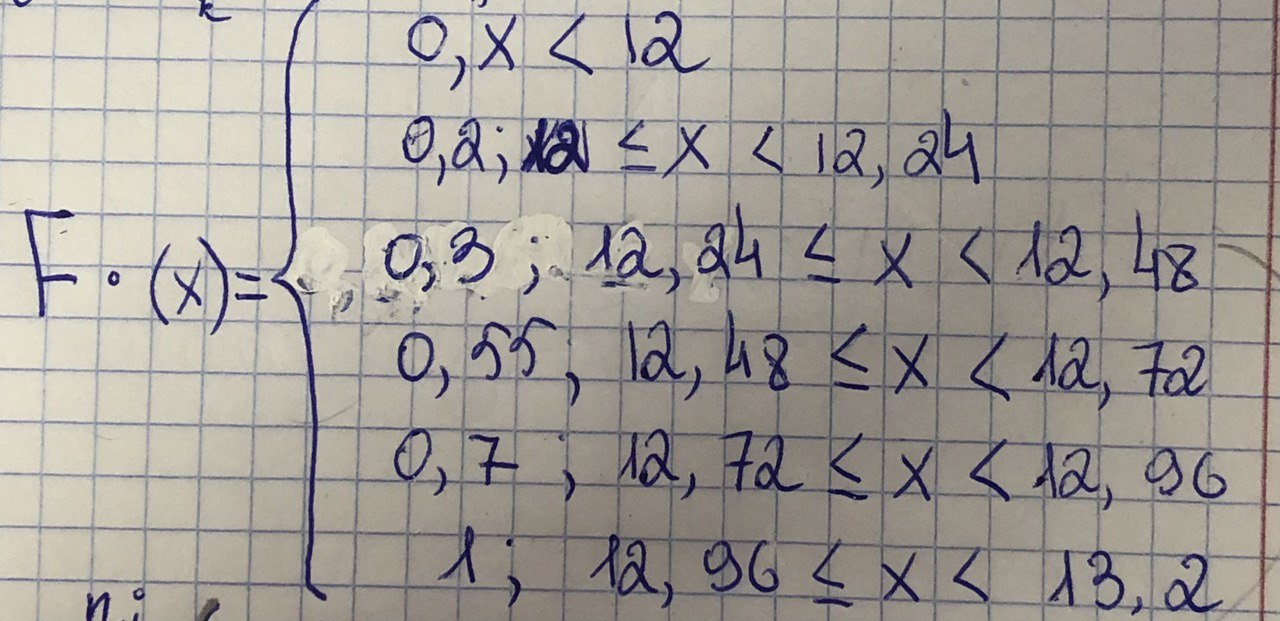 0, x < 12
0,2; 12 ≤ x < 12,24
0,3; 12,24 ≤ x < 12,48
F·(x)=
0,55; 12,48 ≤ x < 12,72
0,7; 12,72 ≤ x < 12,96
1; 12,96 ≤ x < 13,2